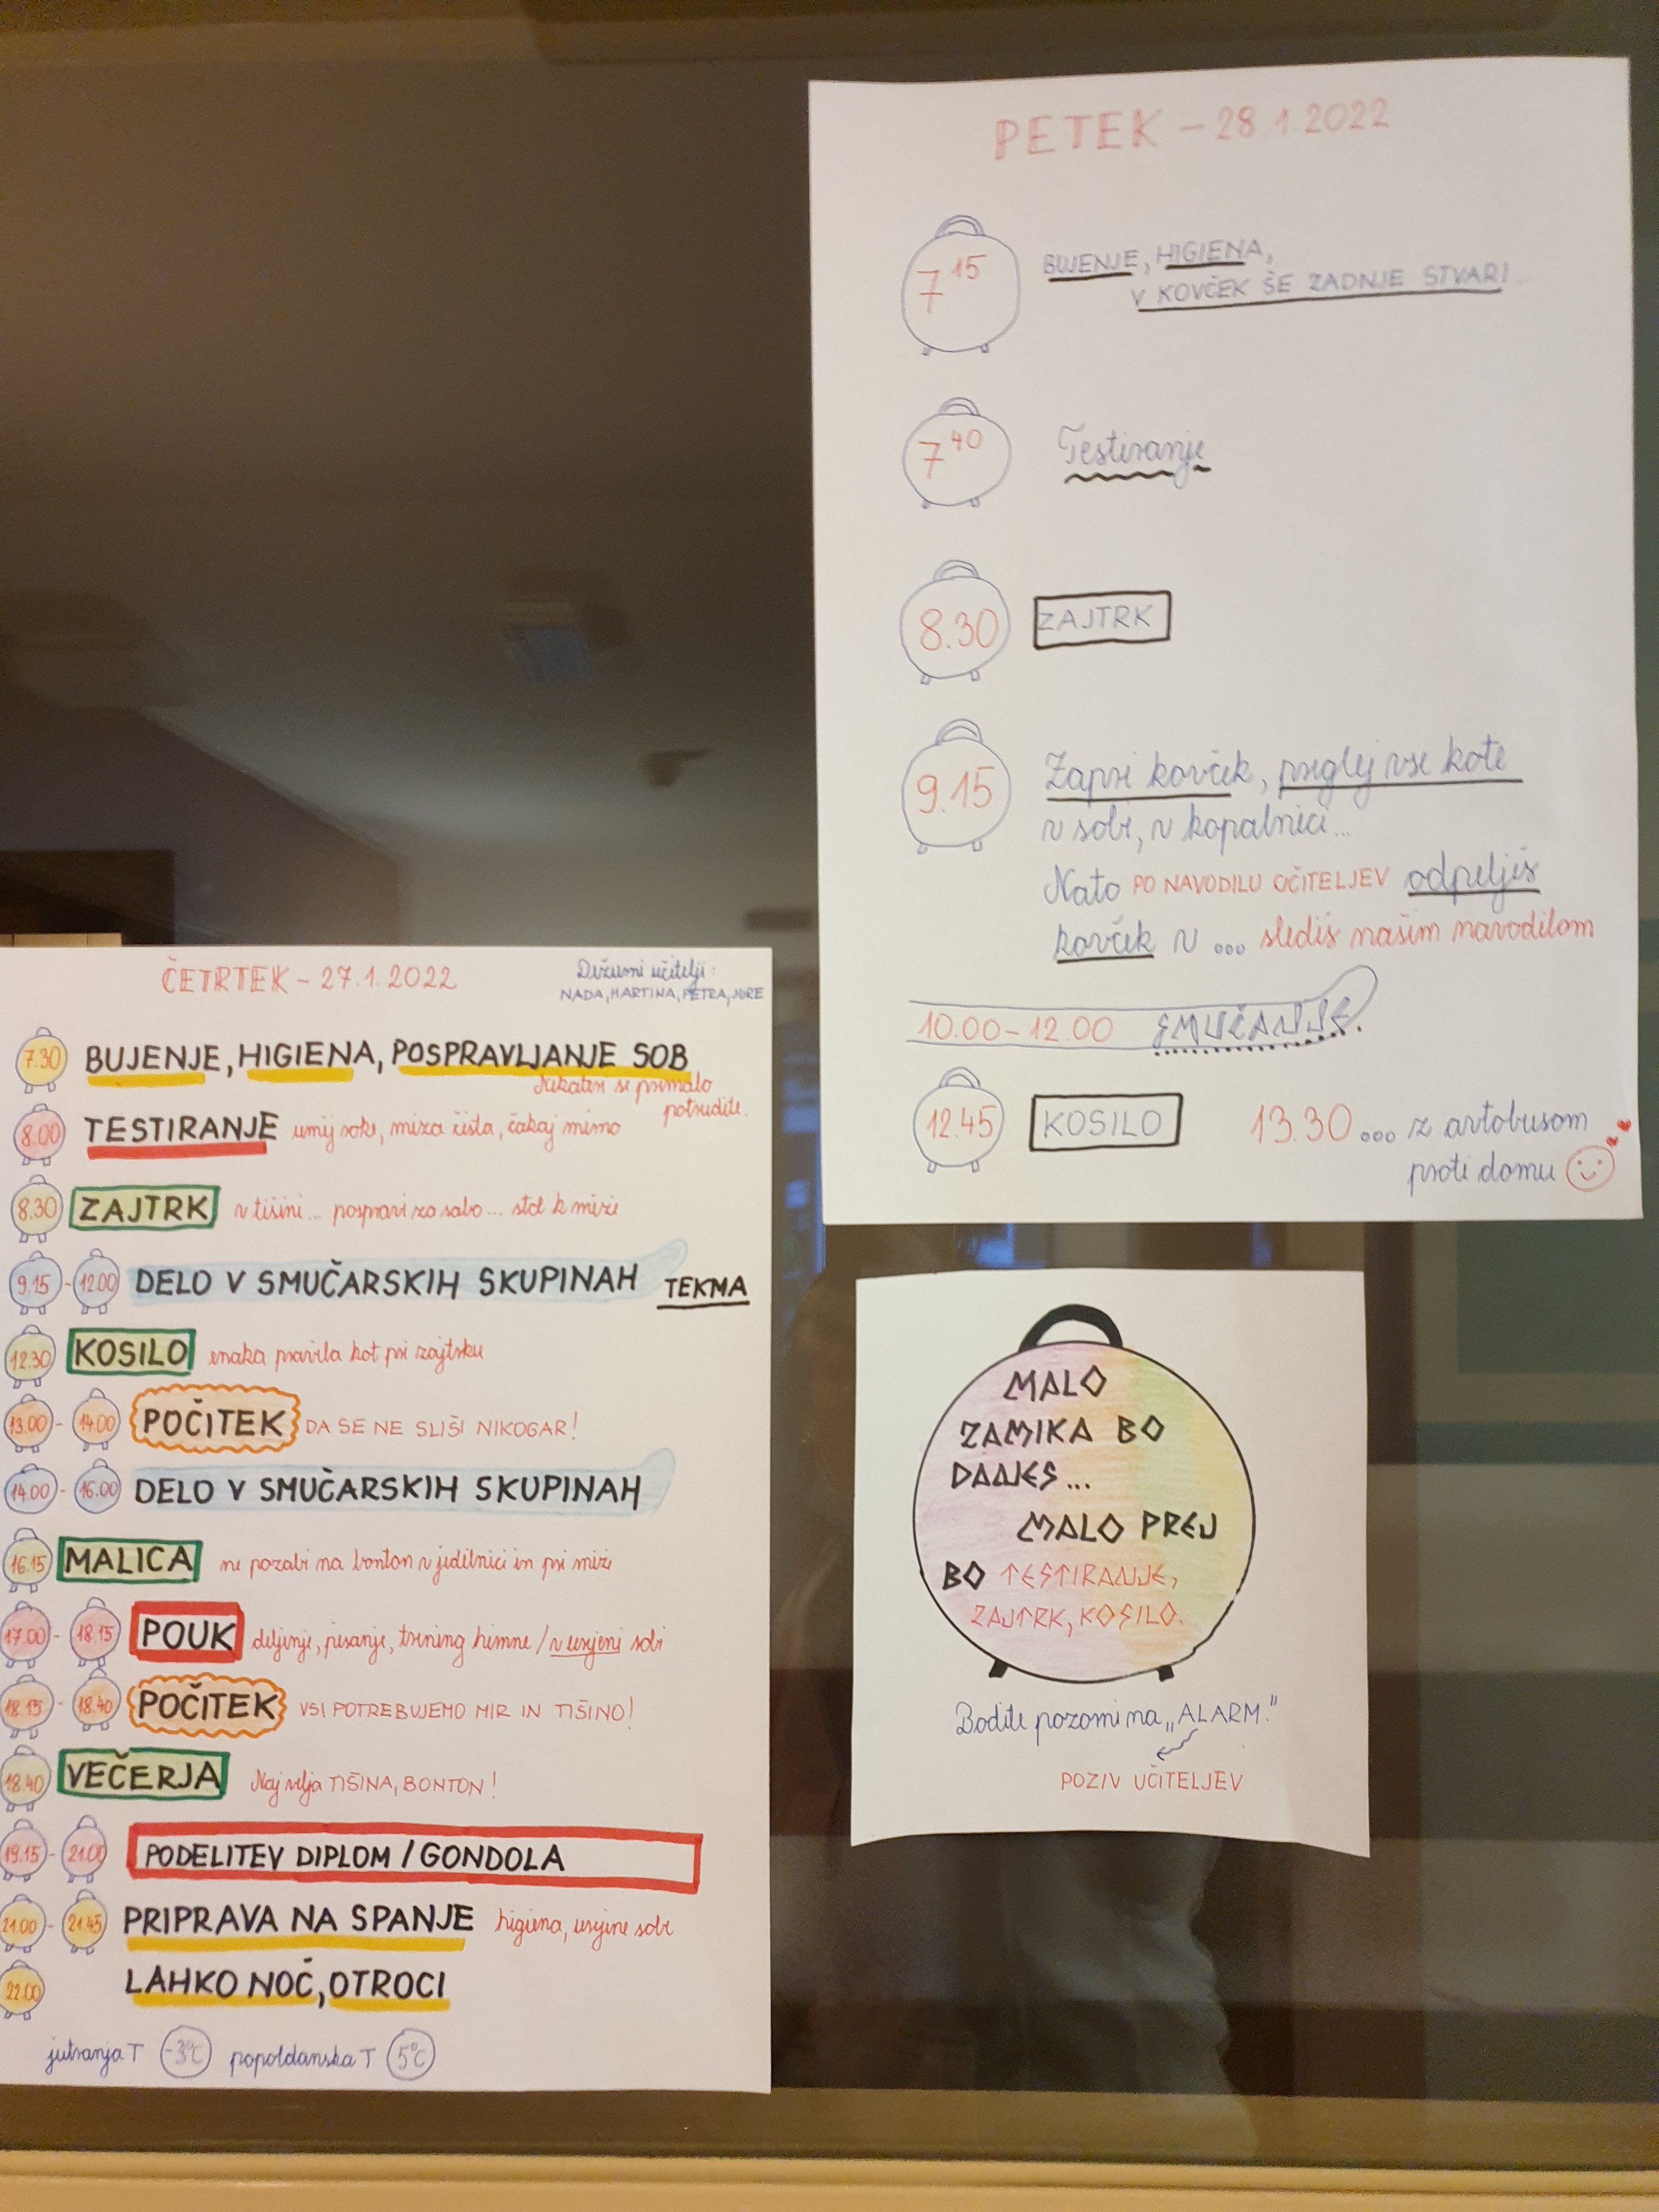 PETEK - 28.1.2022
7 15 BUJENJE, HIGIENA,
V KOVČEK ŠE ZADNJE STVARI...
7 40 Testiranje
8.30 ZAJTRK
9.15 Zapri kovček, preglej vse kote
v sobi, v kopalnici...
Nato PO NAVODILU UČITELJEV odpelješ
kovček v ... slediš našim navodilom
10.00 - 12.00 SMUČANJE.
12.45 KOSILO 13.30 ... z avtobusom
proti domu
ČETRTEK - 27.1.2022
Dežurni učitelji:
NADA, MARTINA, PETRA, JURE
7.30 BUJENJE, HIGIENA, POSPRAVLJANJE SOB
Nekateri se premalo
potrudite.
8.00 TESTIRANJE umij roke, miza čista, čakaj mirno
8.30 ZAJTRK v tišini... pospravi za sabo... stol k mizi
9.15 - 12.00 DELO V SMUČARSKIH SKUPINAH TEKMA
12.30 KOSILO enaka pravila kot pri zajtrku
13.00 - 14.00 POČITEK DA SE NE SLIŠI NIKOGAR!
14.00 - 16.00 DELO V SMUČARSKIH SKUPINAH
16.15 MALICA ne pozabi na bonton v jedilnici in pri mizi
17.00 - 18.15 POUK deljenje, pisanje, trening himne / v urejeni sobi
18.15 - 18.40 POČITEK VSI POTREBUJEMO MIR IN TIŠINO!
18.40 VEČERJA Naj velja TIŠINA, BONTON!
19.15 - 21.00 PODELITEV DIPLOM / GONDOLA
21.00 - 21.45 PRIPRAVA NA SPANJE higiena, urejene sobe
22.00 LAHKO NOČ, OTROCI
jutranja T -3°C popoldanska T 5°C
MALO
ZAMIKA BO
DANES...
MALO PREJ
BO TESTIRANJE,
ZAJTRK, KOSILO.
Bodite pozorni na „ALARM."
POZIV UČITELJEV